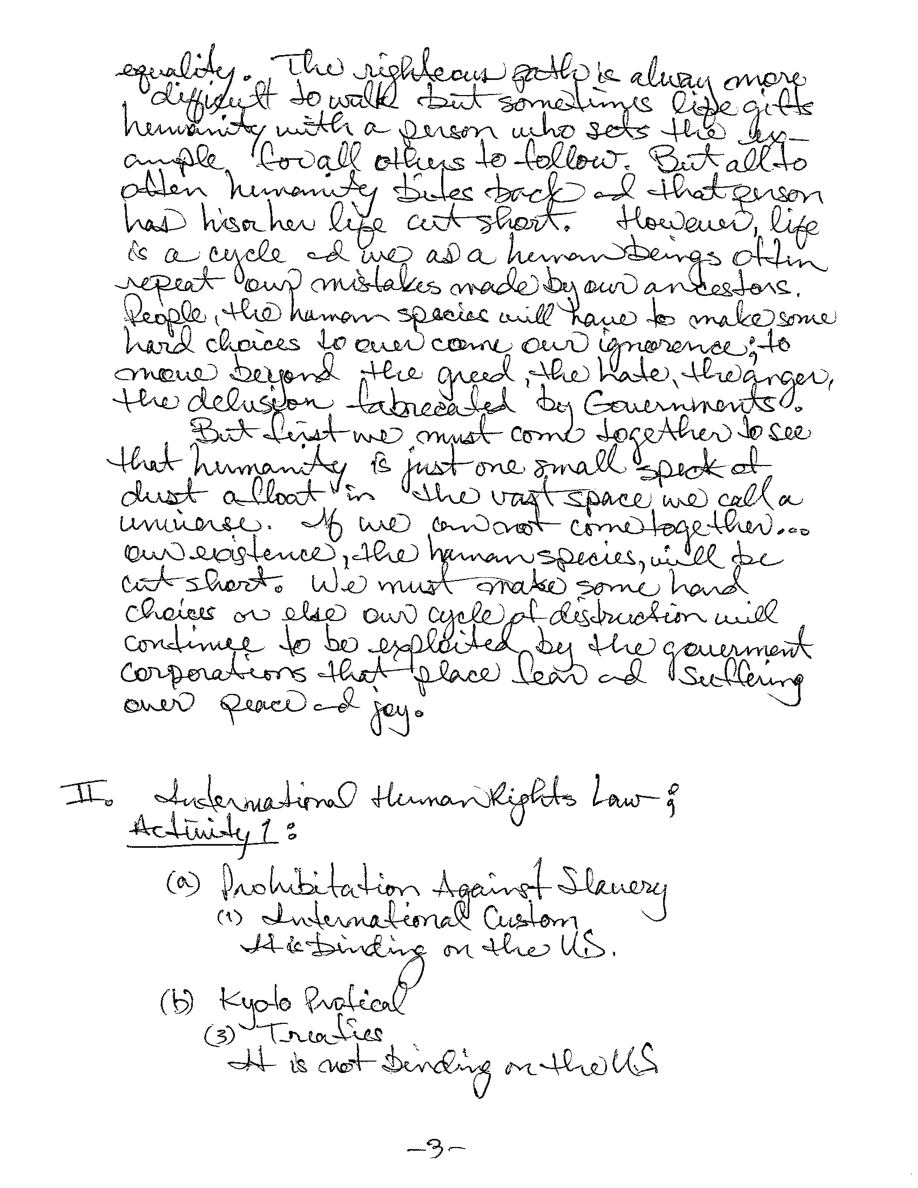 equality. The righteous path is alway more
difficult to walk but sometimes life gifts
humanity with a person who sets the ex-
ample for all others to follow. But all to
often humanity bites back and that person
has his or her life cut short. However, life
is a cycle and we as a human beings often
repeat our mistakes made by our ancestors.
People, the human species will have to make some
hard choices to over come our ignorence; to
move beyond the greed, the hate, the anger,
the delusion fabrecated by Governments.
But first we must come together to see
that humanity is just one small speck of
dust afloat in the vast space we call a
universe. If we can not come together...
our existence, the human species, will be
cut short. We must make some hard
choices or else our cycle of distruction will
continue to be exploited by the goverment
corporations that place fear and suffering
over peace and joy.
II. International Human Rights Law;
Activity 1:
(a) Prohibitation Against Slavery
(1) International Custom
It is binding on the US.
(b) Kyoto Protical
(3) Treaties
It is not binding on the US
-3-